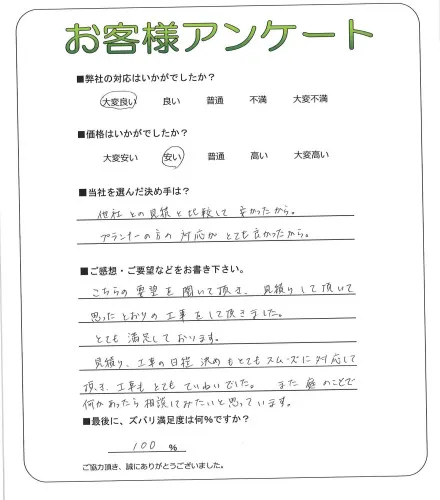 お客様アンケート
■弊社の対応はいかがでしたか？
大変良い 良い 普通 不満 大変不満
■価格はいかがでしたか？
大変安い 安い 普通 高い 大変高い
■当社を選んだ決め手は？
他社との見積と比較して良かったから。
プランナーの方の対応がとても良かったから。
■ご感想・ご要望などをお書き下さい。
こちらの要望を聞いて頂き、見積りして頂いて
思ったとおりの工事をして頂きました。
とても満足しております。
見積り、工事の日程決めもとてもスムーズに対応して
頂き、工事もとてもていねいでした。また庭のことで
何かあったら相談してみたいと思っています。
■最後に、ズバリ満足度は何%ですか？
100 %
ご協力頂き、誠にありがとうございました。